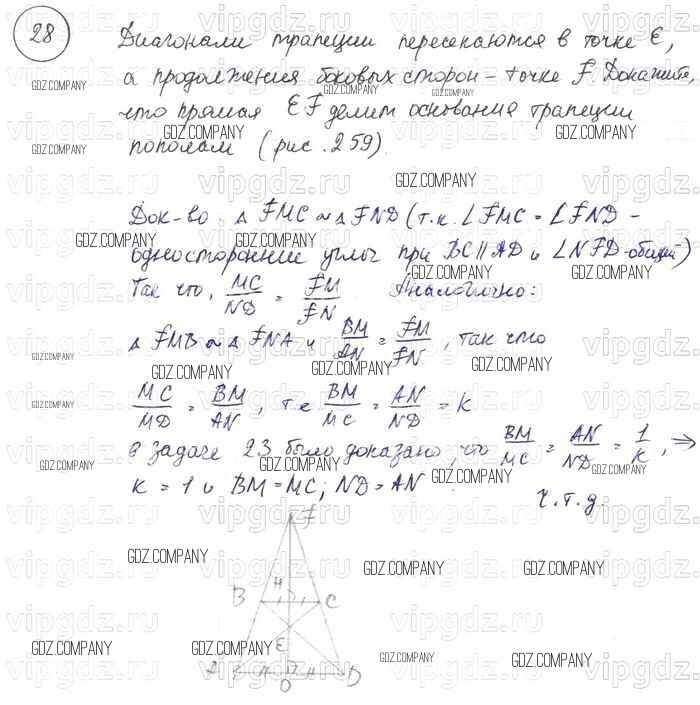 28
Диагонали трапеции пересекаются в точке E,
а продолжения боковых сторон – точке F. Докажите,
что прямая EF делит основания трапеции
пополам (рис. 259).
Док-во: Δ FMC ∾ Δ FND (т.к. ∠FMC = ∠FND –
односторонние углы при BC || AD и ∠NFD – общий)
Так что, MC/ND = FM/FN. Аналогично:
Δ FMB ∾ Δ FNA и BM/AN = FM/FN, так что
MC/MD = BM/AN, т.е BM/MC = AN/ND = K
В задаче 23 было доказано, что BM/MC = AN/ND = 1/K, ⇒
K = 1 и BM = MC; ND = AN
Ч.т.д.
F
B C
E
A D
O
GDZ.COMPANY
vipgdz.ru